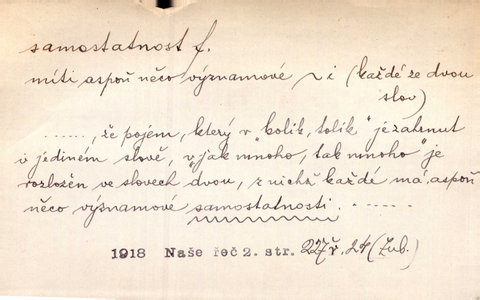 samostatnost f.
míti aspoň něco významové ~i (každé ze dvou
slov)
......, že pojem, který v „kolik, tolik“ je zahrnut
v jediném slově, v „jak mnoho, tak mnoho“ je
rozložen ve slovech dvou, z nichž každé má aspoň
něco významové samostatnosti.......
1918 Naše řeč 2. str. 227 ř. 24 (Zub.)